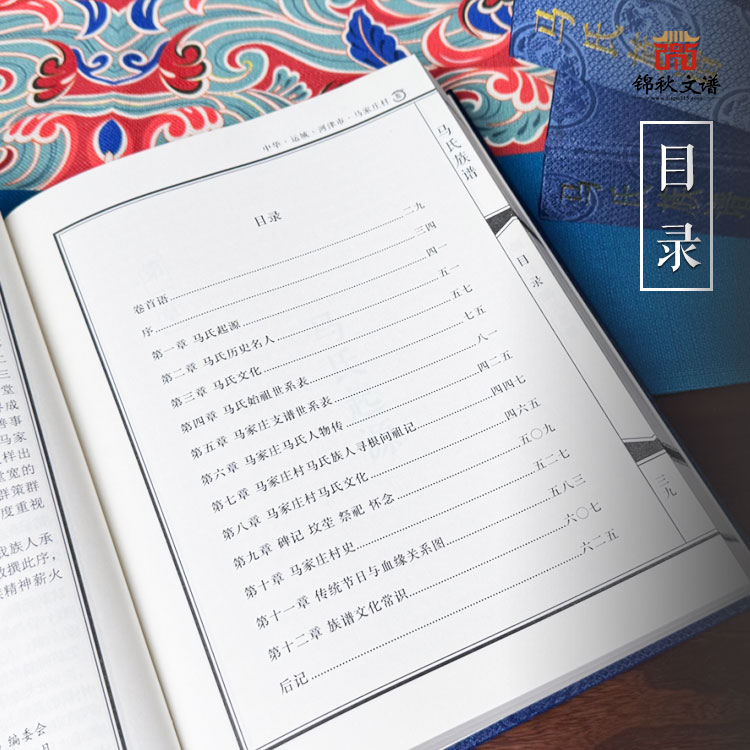 锦秋文谱
目录
中华·运城·河津市·马家庄村
马氏族谱
目录
三九
目录
卷首语……二九
序……三四
第一章 马氏起源……四一
第二章 马氏历史名人……五一
第三章 马氏文化……五七
第四章 马氏始祖世系表……七五
第五章 马家庄支谱世系表……八一
第六章 马家庄马氏人物传……四二五
第七章 马家庄村马氏族人寻根问祖记……四四七
第八章 马家庄村马氏文化……四六五
第九章 碑记 坟茔 祭祀 怀念……五〇九
第十章 马家庄村史……五二七
第十一章 传统节日与血缘关系图……五八三
第十二章 族谱文化常识……六〇七
后记……六二五
三
堂
成
事
马家
样出
宽的
群策群
度重视
我族人承
撰此序，
精神薪火
编委会
月
马氏
马氏族谱